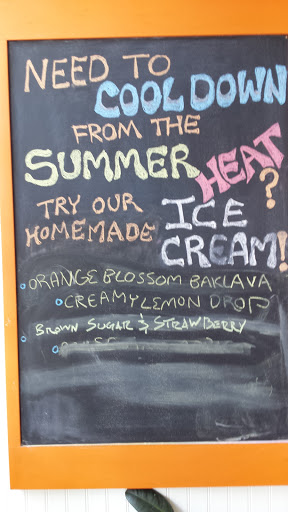 NEED TO
COOL DOWN
FROM THE
SUMMER HEAT?
TRY OUR
HOMEMADE
ICE
CREAM!
ORANGE BLOSSOM BAKLAVA
CREAMY LEMON DROP
BROWN SUGAR & STRAWBERRY